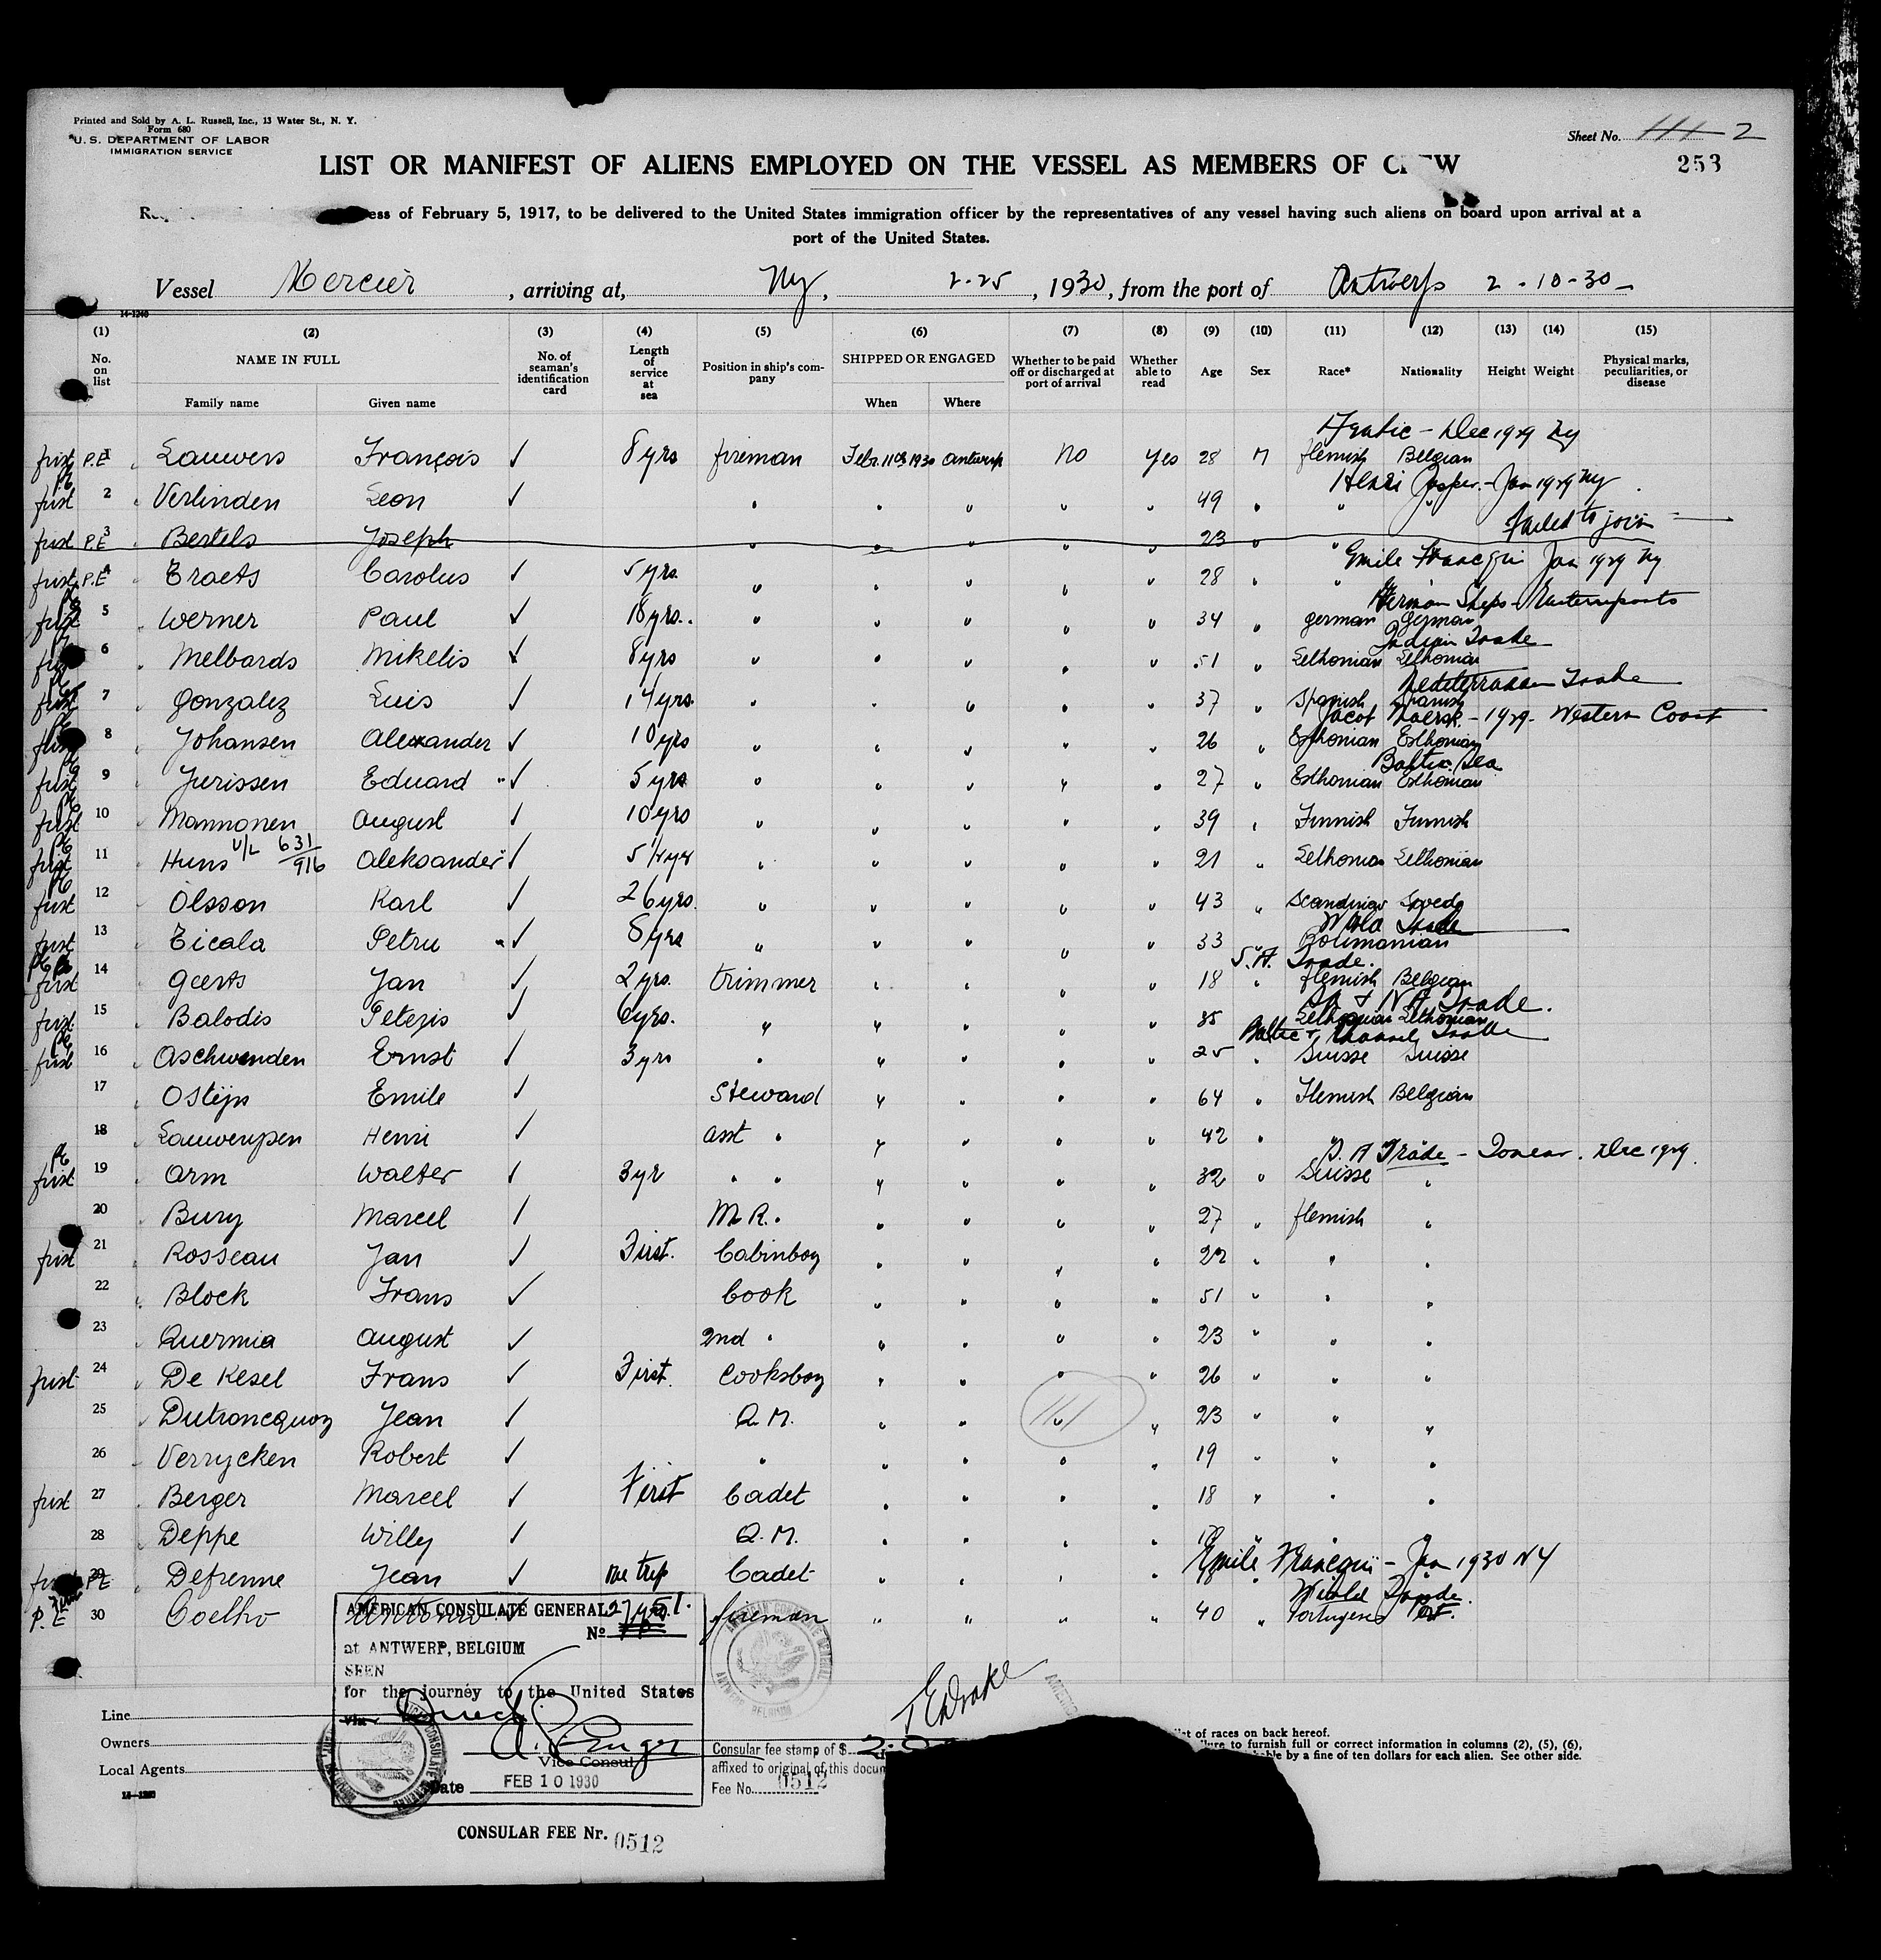 Printed and Sold by A. L. Russell, Inc., 13 Water St., N. Y.
Form 680
U. S. DEPARTMENT OF LABOR
IMMIGRATION SERVICE
Sheet No. 2
253
LIST OR MANIFEST OF ALIENS EMPLOYED ON THE VESSEL AS MEMBERS OF
ess of February 5, 1917, to be delivered to the United States immigration officer by the representatives of any vessel having such aliens on board upon arrival at a
port of the United States.
Vessel Mercier, arriving at, Ny, 2-25, 1930, from the port of Antwerp 2-10-30
14-1240
(1) (2) (3) (4) (5) (6) (7) (8) (9) (10) (11) (12) (13) (14) (15)
No. on list NAME IN FULL Family name Given name No. of seaman's identification card Length of service at sea Position in ship's company SHIPPED OR ENGAGED When Where Whether to be paid off or discharged at port of arrival Whether able to read Age Sex Race* Nationality Height Weight Physical marks, peculiarities, or disease
Dec 1929 Ny
first P.E 1 Lauwers François ✓ 8 yrs fireman Febr. 11th 1930 Antwerp No yes 28 M flemish Belgian
Henri Jaspar - Jan 1929 Ny
first 2 Verlinden Leon ✓ " " " " " 49 " " "
failed to join
first P.E 3 Bertels Joseph " " " " " 23 " "
Emile Francqui Jan 1929 Ny
first P.E 4 Eraets Carolus ✓ 5 yrs " " " " " 28 " "
German Ships -
first 5 Werner Paul ✓ 18 yrs. " " " " " 34 " german German
Trade
first 6 Melbards Mikelis ✓ 8 yrs " " " " " 51 " Lethonian Lethonian
Mediterranean Trade
first 7 Gonzalez Luis ✓ 14 yrs. " " " " " 37 " Spanish Spanish
- 1929 - Western Coast
8 Johansen Alexander ✓ 10 yrs " " " " " 26 " Esthonian Esthonian
Baltic Sea
first 9 Jurissen Eduard ✓ 5 yrs " " " " " 27 " Esthonian Esthonian
first 10 Mannonen August ✓ 10 yrs " " " " " 39 " Finnish Finnish
first 11 Huns 631/916 Aleksander ✓ " " " " " 21 " Esthonian Esthonian
first 12 Olsson Karl ✓ 26 yrs. " " " " " 43 " Scandinav Swede
Trade
first 13 Eicala Petru ✓ 8 yrs " " " " " 33 Roumanian
S.A. Trade.
first 14 Geerts Jan ✓ 2 yrs. trimmer " " " " 18 " flemish Belgian
SA & NA Trade.
first 15 Balodis Peteris ✓ 6 yrs. " " " " " 35 Lethonian Lethonian
Baltic & Channel Trade
first 16 Aschwanden Ernst ✓ 3 yrs " " " " " 25 " Suisse Suisse
17 Ostijn Emile ✓ Steward " " " " 64 " Flemish Belgian
18 Lauwerijsen Henri ✓ asst " " " " " 42 " "
S. A Trade - Dec 1929.
first 19 Arm Walter ✓ 3 yr " " " " " " 32 " Suisse "
20 Bury Marcel ✓ M.R. " " " " 27 " flemish "
first 21 Rosseau Jan ✓ First. Cabinboy " " " " 22 " " "
22 Block Frans ✓ Cook " " " " 51 " " "
23 Quermia August ✓ 2nd " " " " " 23 " " "
first 24 De Kesel Frans ✓ First. Cooksboy " " " " 26 " " "
25 Dutroncquoy Jean ✓ Q.M. " " " " 23 " " "
26 Verrycken Robert ✓ " " " " " 19 " " "
first 27 Berger Marcel ✓ First Cadet " " " " 18 " " "
28 Deppe Willy ✓ Q.M. " " " " " "
Emile Francqui - Jan 1930 NY
29 Defrenne Jean ✓ one trip Cadet " " " "
Trade.
P.E 30 Coelho Antonio fireman " " " " 40 " Portugese Port.
AMERICAN CONSULATE GENERAL
No
at ANTWERP, BELGIUM
SEEN
for the journey to the United States
via
Vice Consul
Date FEB 10 1930
CONSULAR FEE Nr. 0512
Line
Owners
Local Agents
Consular fee stamp of $
affixed to original of this docum
Fee No. 0512
list of races on back hereof.
ilure to furnish full or correct information in columns (2), (5), (6),
able by a fine of ten dollars for each alien. See other side.